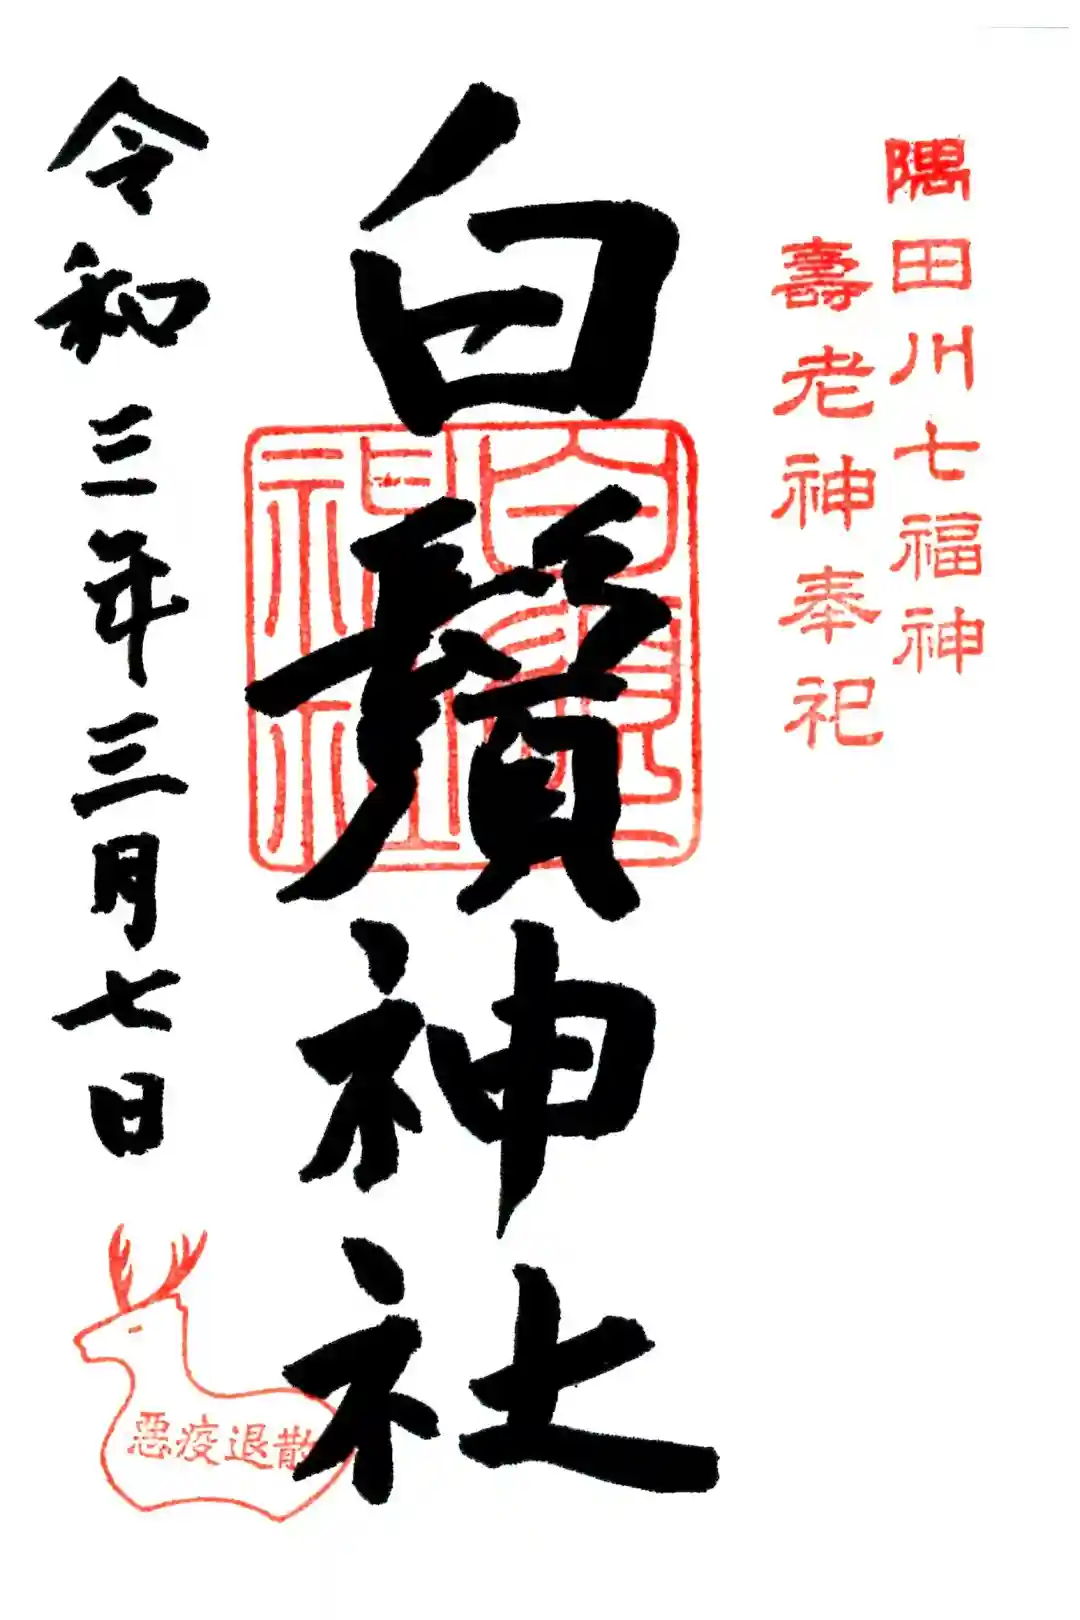 隅田川七福神
壽老神奉祀
白鬚神社
令和三年三月七日
惡疫退散